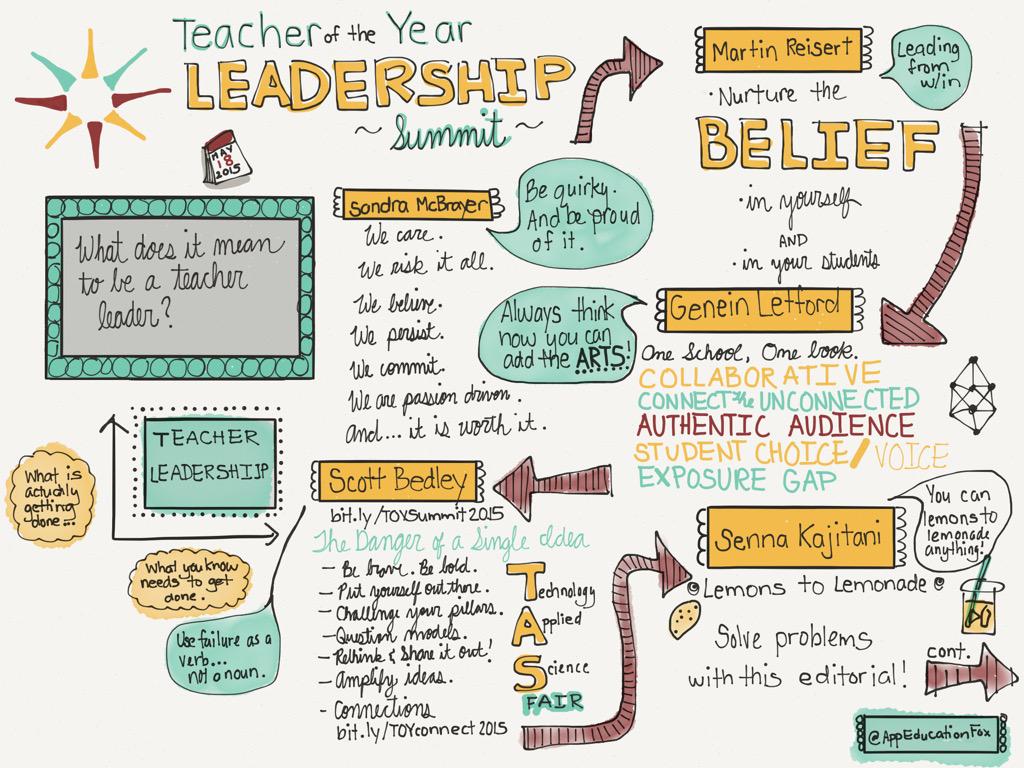 Teacher of the Year
LEADERSHIP
~ Summit ~
MAY
18
2015
What does it mean
to be a teacher
leader?
TEACHER
LEADERSHIP
What is
actually
getting
done...
What you know
needs to get
done.
Use failure as a
verb...
not a noun.
Sondra McBrayer
Be quirky.
And be proud
of it.
We care.
We risk it all.
We believe.
We persist.
We commit.
We are passion driven.
And... it is worth it.
Scott Bedley
bit.ly/TOYSummit2015
The Danger of a Single Idea
- Be brave. Be bold.
- Put yourself out there.
- Challenge your pillars.
- Question models.
- Rethink & Share it out!
- Amplify ideas.
- Connections
bit.ly/TOYconnect2015
Technology
Applied
Science
FAIR
Martin Reisert
Leading
from
w/in
• Nurture the
BELIEF
• in yourself
AND
• in your students
Genein Letford
Always think
how you can
add the ARTS!
One School, One book.
COLLABORATIVE
CONNECT the UNCONNECTED
AUTHENTIC AUDIENCE
STUDENT CHOICE/VOICE
EXPOSURE GAP
Senna Kajitani
You can
lemons to
lemonade
anything!
Lemons to Lemonade
Solve problems
with this editorial!
cont.
@AppEducationFox